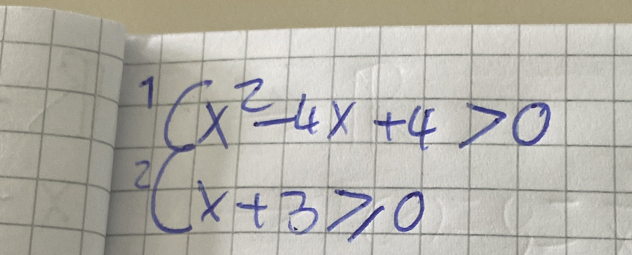 1 { x² - 4x + 4 > 0
2 { x + 3 ⩾ 0